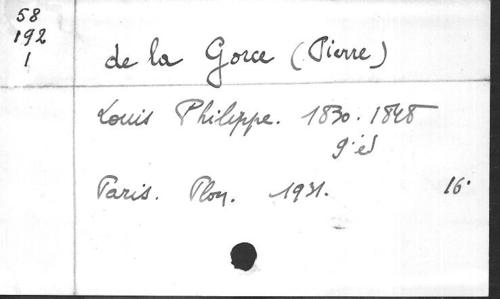 58
192
1
de la Gorce (Pierre)
Louis Philippe. 1830. 1848
9'éd
Paris. Plon. 1931. 16.